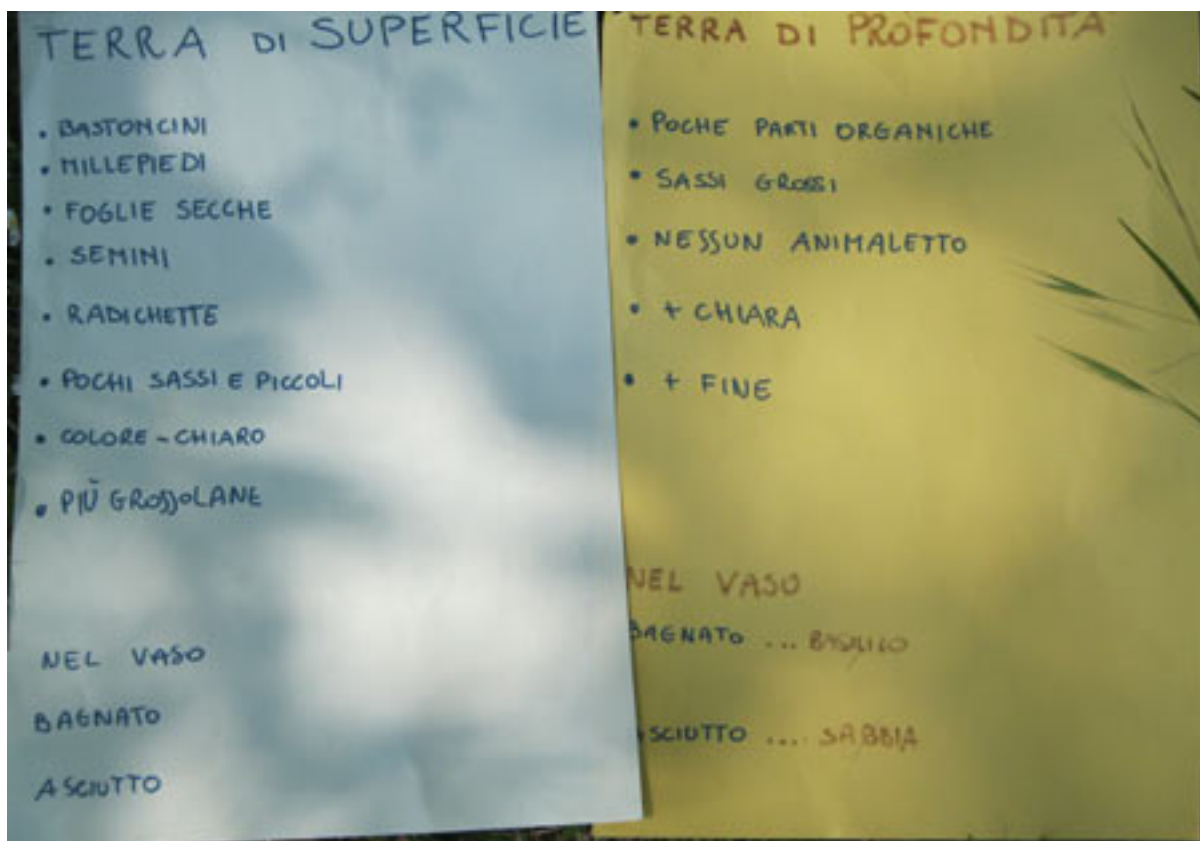 TERRA DI SUPERFICIE
• BASTONCINI
• MILLEPIEDI
• FOGLIE SECCHE
• SEMINI
• RADICHETTE
• POCHI SASSI E PICCOLI
• COLORE - CHIARO
• PIÙ GROSSOLANE
NEL VASO
BAGNATO
ASCIUTTO
TERRA DI PROFONDITA'
• POCHE PARTI ORGANICHE
• SASSI GROSSI
• NESSUN ANIMALETTO
• + CHIARA
• + FINE
NEL VASO
BAGNATO ... BASILICO
ASCIUTTO .... SABBIA